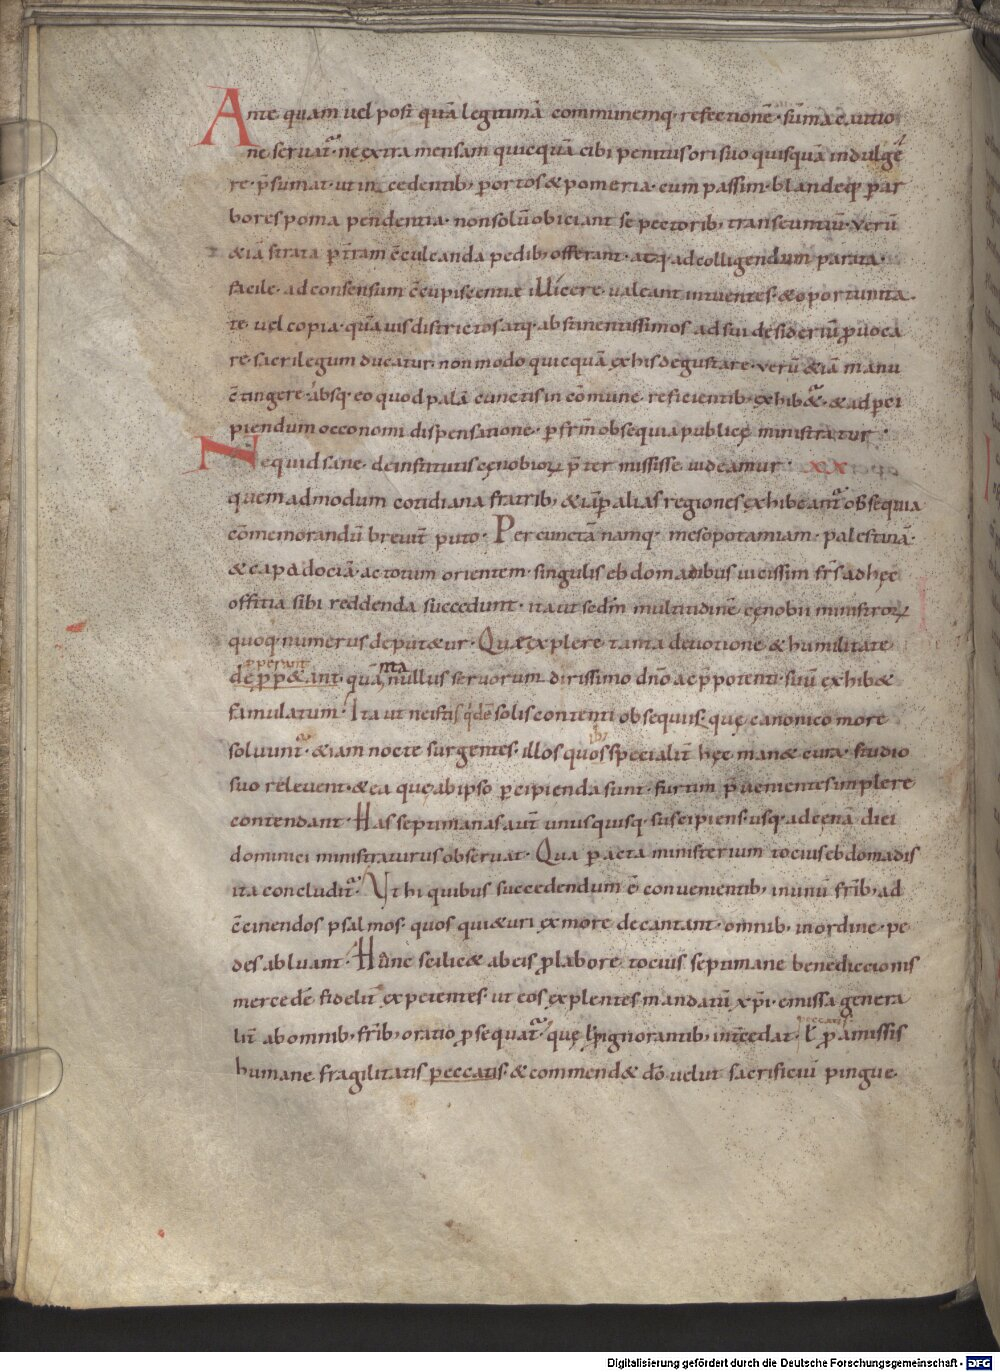 Ante quam uel post quā legitimā communemq; refectionē· sūma cautio
ne seruat̄· ne extra mensam quicquā cibi penitus ori suo quisquā indulge
re p̄sumat· ut incedentib; ꝑ ortos & pomeria· cum passim· blandeq; ꝑ ar
bores poma pendentia· non solū obiciant se pectorib; transeuntiū· uerū
& iā strata ꝑ t̄ram c̄culcanda pedib; offerant· atq; ad colligendum parata·
facile· ad consensum c̄cupiscentiæ illicere· ualeant intuentes· & oportunita
te· uel copia· quāuis districtos atq; abstinentissimos ad sui desideriū ꝓuoca
re· sacrilegum ducatur· non modo quicquā ex his degustare· uerū & iā manu
c̄tingere· absq; eo quod palā cunctis in cōmune· reficientib; exhib&· & ad ꝑci
piendum oeconomi dispensatione· ꝑ fr̄m obsequia publicę ministratur·
Ne quid sane· de institutis cęnobioꝝ p̄termississe uideamur· XX
quemadmodum cotidiana fratrib; & iā ꝑ alias regiones exhibeant̄ obsequia
cōmemorandū breuit̄ puto· Per cunctā namq; mesopotamiam· palestinā·
& capadociā· ac totum orientem· singulis ebdomadibus uicissim fr̄s ad hęc
offitia sibi reddenda succedunt· ita ut sedm̄ multitudinē cęnobii ministroꝝ
quoq; numerus deput&ur· Quæ explere tanta deuotione & humilitate
ꝓperant
deꝓp&ant· quāta nullus seruorum dirissimo dn̄o ac p̄potenti· suū exhib&
famulatum· Ita ut ne istis q̇dē solis contenti obsequiis· quę canonico more
soluunt̄· & iam nocte surgentes· illos quos specialit̄ hęc man& cura· studio
suo releuent· & ea quę ab ipso ꝑcipienda sunt· furtim p̄uenientes implere
contendant· Has septimanas aut̄ unusquisq; suscipiens· usq; ad cęnā diei
dominici ministraturus obseruat· Qua ꝑacta ministerium tocius ebdomadis
ita concludit̄· Ut hi quibus succedendum ē conuenientib; in unū fr̄ib; ad
c̄cinendos psalmos· quos qui&uri ex more decantant· omnib; in ordine· pe
des abluant· Hanc scilic& ab eis ꝓ labore· tocius septimane benediccionis
mercedē fidelit̄ expetentes· ut eos explentes mandatū xp̄i· emissa genera
peccatis
lit̄ ab omnib; fr̄ib; oratio ꝓsequat̄· quę ł ꝓ ignorantib; int̄cedat· ł ꝓ amissis
humane fragilitatis peccatis· & commend& dō uelut sacrificiū pingue·
Digitalisierung gefördert durch die Deutsche Forschungsgemeinschaft - DFG